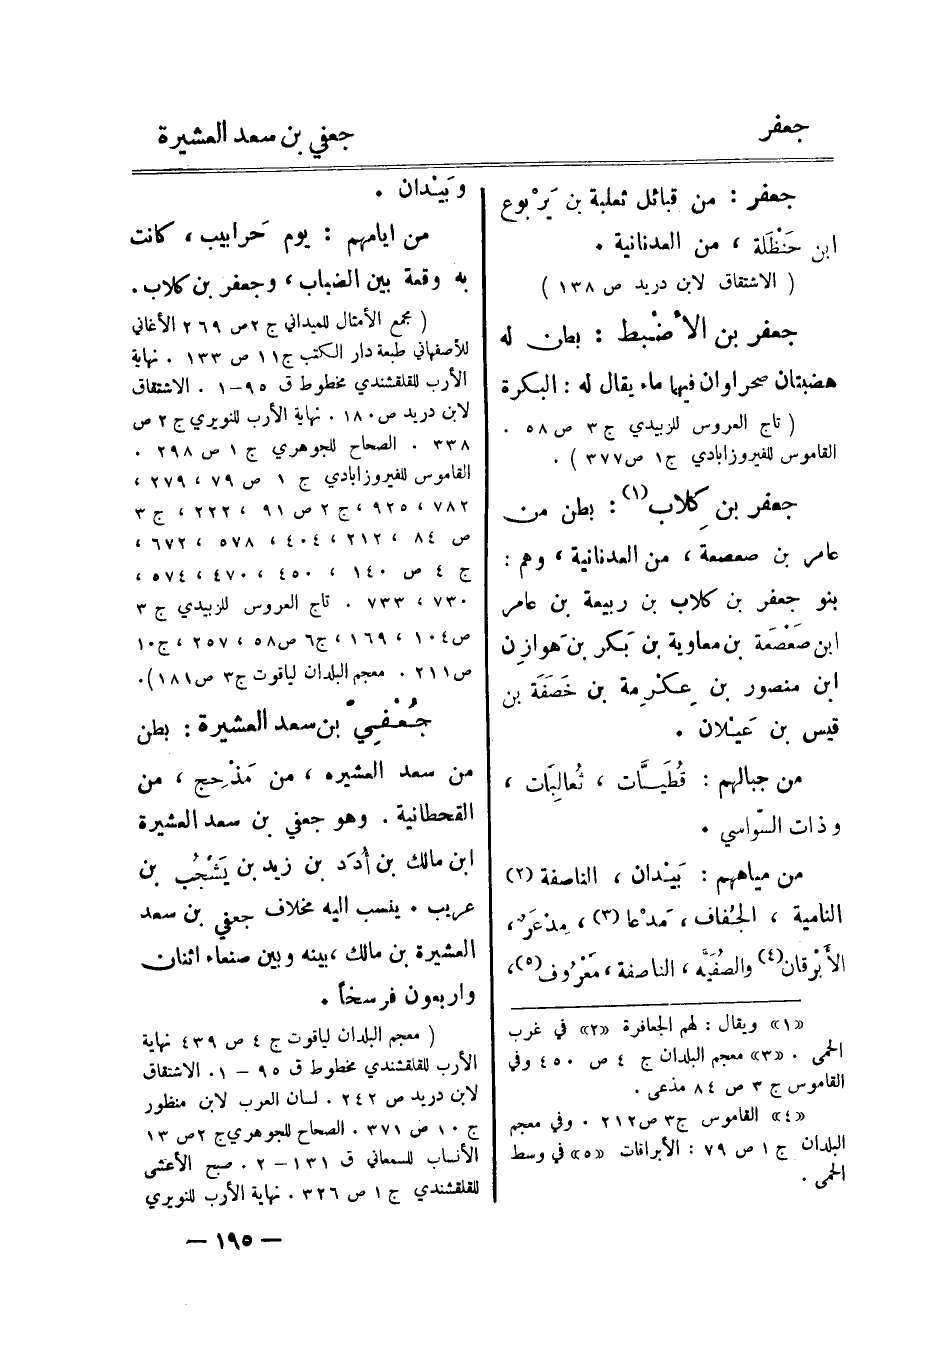 جعفر
جعفي بن سعد العشيرة
جعفر : من قبائل ثعلبة بن يَرْبوع
ابن حَنْظَلة ، من العدنانية .
( الاشتقاق لابن دريد ص ١٣٨ )
جعفر بن الأضْبط : بطن له
هضبتان صحراوان فيها ماء يقال له : البكرة
( تاج العروس للزبيدي ج ٣ ص ٥٨ .
القاموس للفيروزابادي ج ١ ص ٣٧٧ ) .
جعفر بن كِلاب (١) : بطن من
عامر بن صعصعة ، من العدنانية ، وهم :
بنو جعفر بن كلاب بن ربيعة بن عامر
ابن صَعْصَعَة بن معاوية بن بَكر بن هَوازِن
ابن منصور بن عِكْرِمة بن خَصَفَة بن
قيس بن عَيْلان .
من جبالهم : قُطَيَّات ، ثُعالِبَات ،
وذات السّواسي .
من مياههم : بَيْدان ، الناصفة (٢)
النامية ، الجُفاف ، مَدعا (٣) ، مِدْعَر ،
الأَبْرقان (٤) والصُفَيَّه ، الناصفة ، مَعْرُوف (٥) ،
«١» ويقال : لهم الجعافرة «٢» في غرب
الحمى . «٣» معجم البلدان ج ٤ ص ٤٥٠ وفي
القاموس ج ٣ ص ٨٤ مذعى .
«٤» القاموس ج٣ ص٢١٢ . وفي معجم
البلدان ج ١ ص ٧٩ : الأبرقات «٥» في وسط
الحمى .
وبَيْدان .
من ايامهم : يوم حَرابيب ، كانت
به وقعة بين الضباب ، وجعفر بن كلاب .
( مجمع الأمثال للميداني ج ٢ ص ٢٦٩ الأغاني
للأصفهاني طبعة دار الكتب ج١١ ص ١٣٣ . نهاية
الأرب للقلقشندي مخطوط ق ٩٥-١ . الاشتقاق
لابن دريد ص١٨٠ . نهاية الأرب للنويري ج ٢ ص
٣٣٨ . الصحاح للجوهري ج ١ ص ٢٩٨ .
القاموس للفيروزابادي ج ١ ص ٧٩ ، ٢٧٩ ،
٧٨٢ ، ٩٢٥ ، ج ٢ ص ٩١ ، ٢٢٢ ، ج ٣
ص ٨٤ ، ٢١٢ ، ٤٠٤ ، ٥٧٨ ، ٦٧٢ ،
ج ٤ ص ١٤٠ ، ٤٥٠ ، ٤٧٠ ، ٥٧٤ ،
٧٣٠ ، ٧٣٣ . تاج العروس للزبيدي ج ٣
ص١٠٤ ، ١٦٩ ، ج٦ ص٥٨ ، ٢٥٧ ، ج١٠
ص٢١١ . معجم البلدان لياقوت ج٣ ص١٨١) .
جُعْفِيّ بن سعد العشيرة : بطن
من سعد العشيره ، من مَذْحِج ، من
القحطانية . وهو جعفي بن سعد العشيرة
ابن مالك بن أُدَد بن زيد بن يَشْجُب بن
عريب . ينسب اليه مخلاف جعفي بن سعد
العشيرة بن مالك ، بينه وبين صنعاء اثنان
واربعون فرسخاً .
( معجم البلدان لياقوت ج ٤ ص ٤٣٩ نهاية
الأرب للقلقشندي مخطوط ق ٩٥ - ١ . الاشتقاق
لابن دريد ص ٢٤٢ . لسان العرب لابن منظور
ج ١٠ ص ٣٧١ . الصحاح للجوهري ج ٢ ص ١٣
الأنساب للسمعاني ق ١٣١ - ٢ . صبح الأعشى
للقلقشندي ج ١ ص ٣٢٦ . نهاية الأرب للنويري
— ١٩٥ —